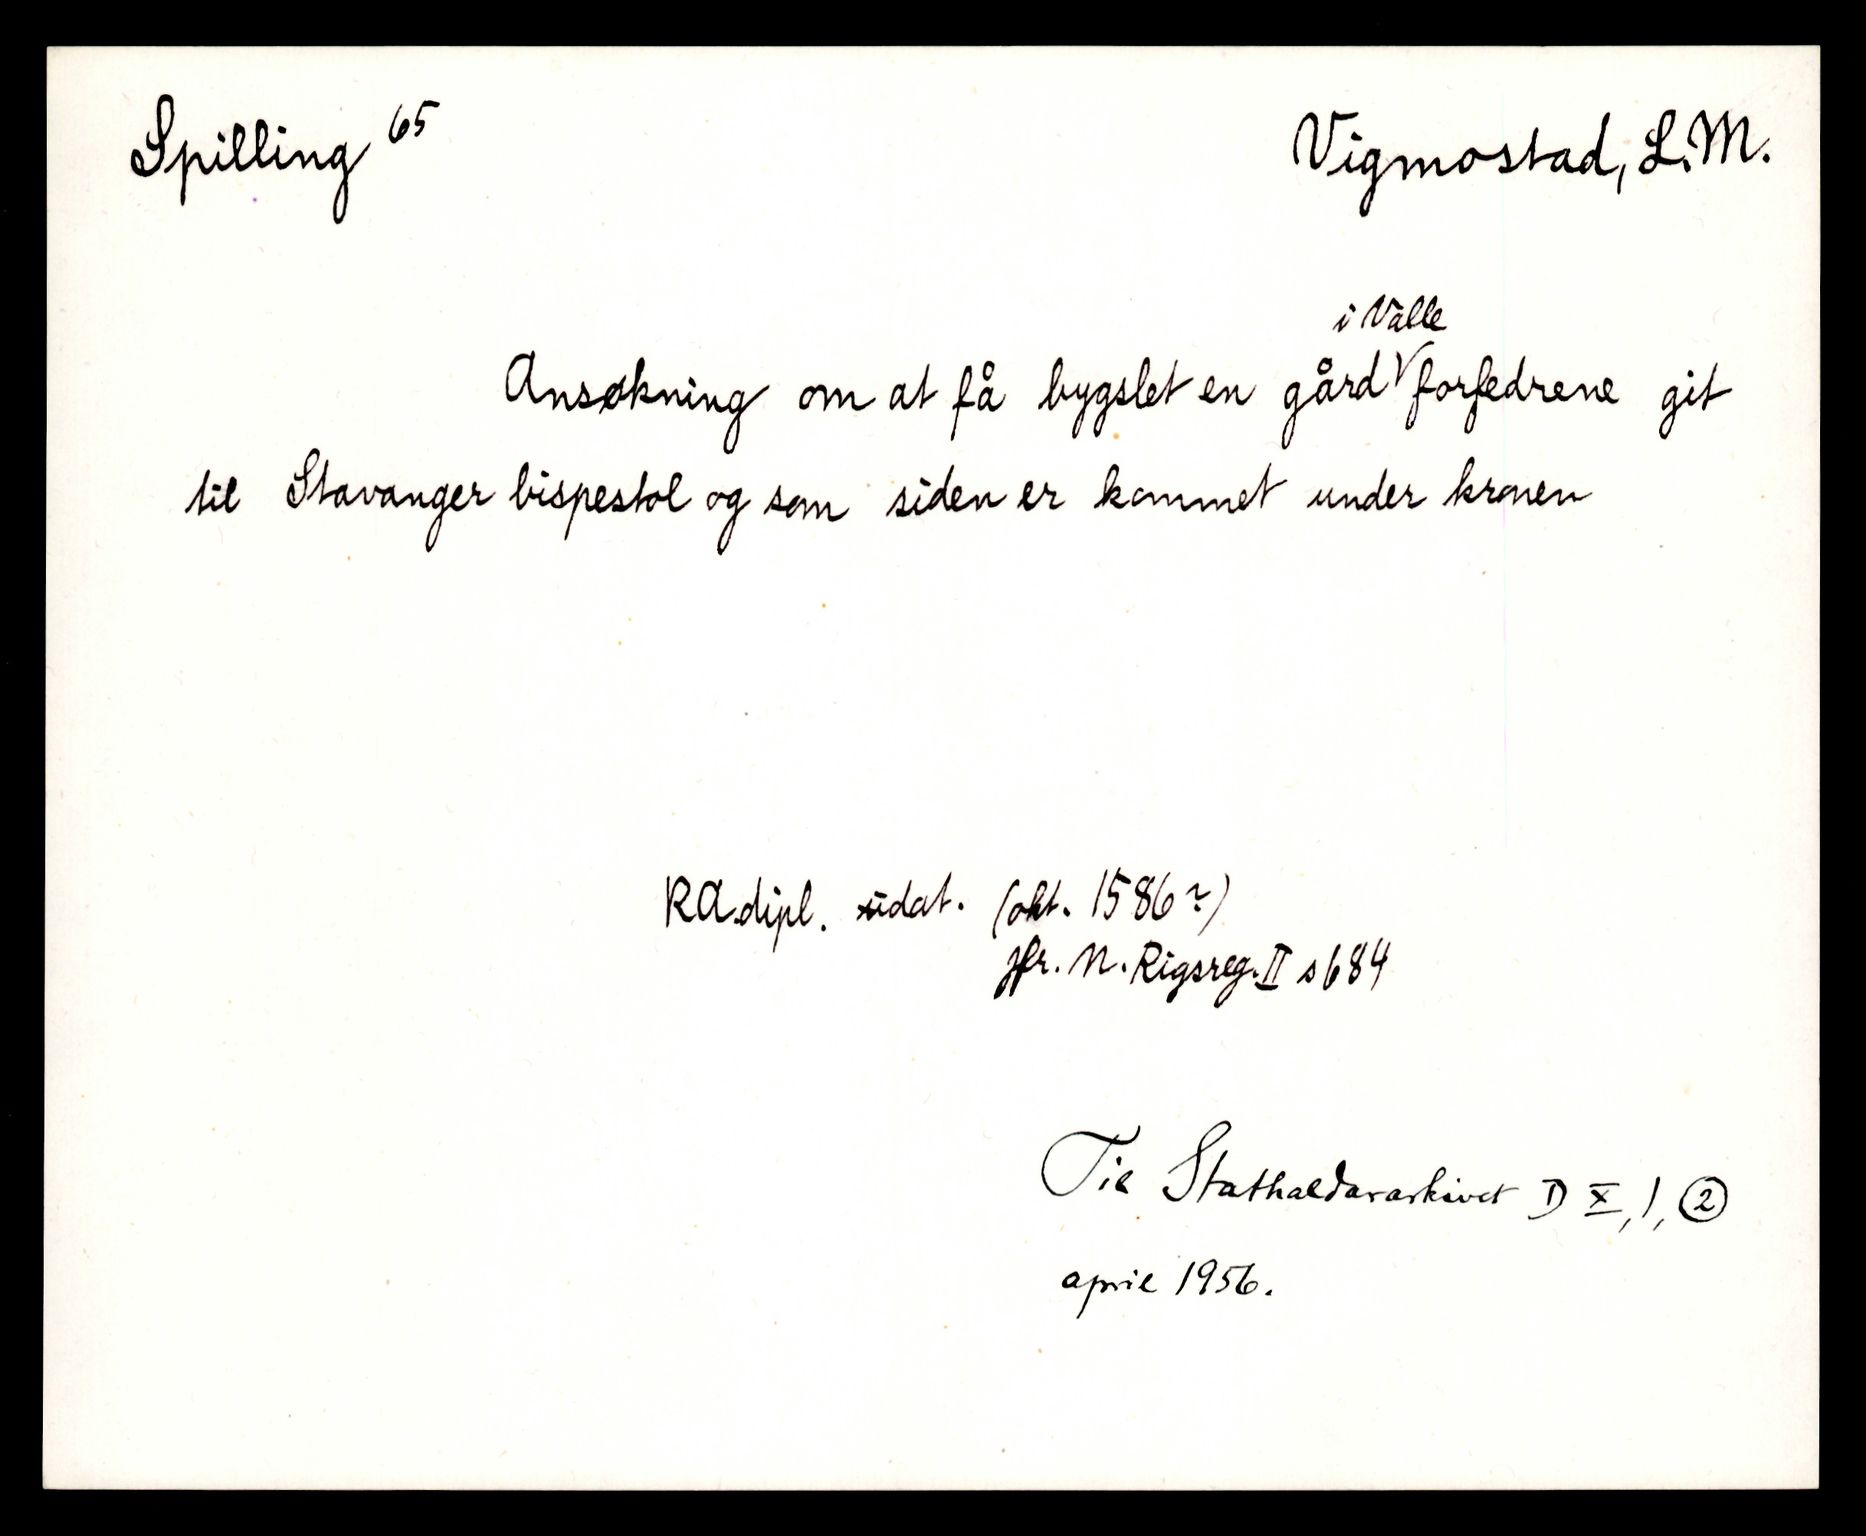 Spilling 65
Vigmostad, L.M.
i Valle
Ansøkning om at få bygslet en gård forfedrene git
til Stavanger bispestol og som siden er kommet under kronen
RA.dipl. udat. (okt. 1586?)
jfr. N. Rigsreg. II s 684
Til Stathaldararkivet D X, 1, 2
april 1956.